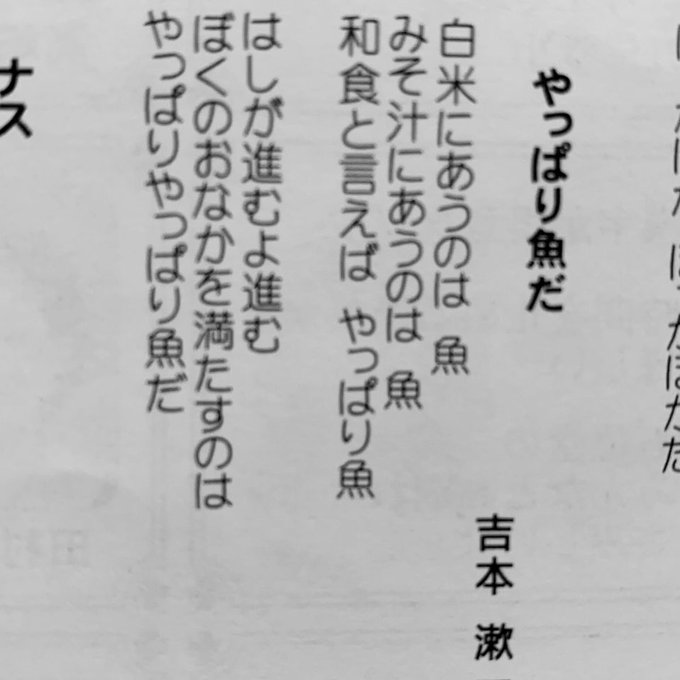 やっぱり魚だ
吉本 漱
白米にあうのは 魚
みそ汁にあうのは 魚
和食と言えば やっぱり魚
はしが進むよ進む
ぼくのおなかを満たすのは
やっぱりやっぱり魚だ
ナス